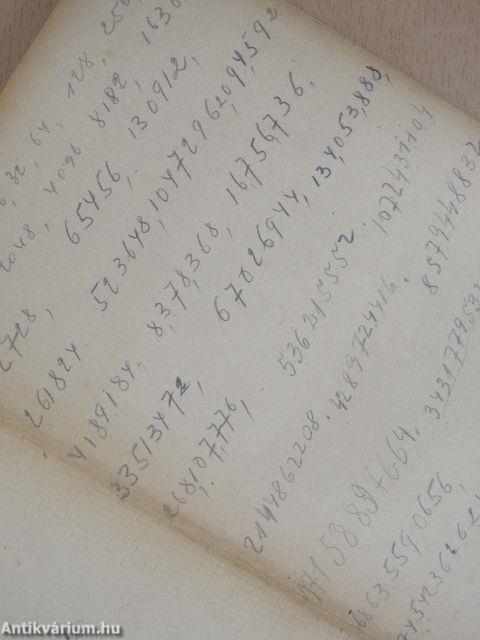 32, 64, 128, 256
2048, 4096 8182, 1636
2728, 65456, 130912,
261824 523648, 1047296, 2094592
4189184, 8,378,368, 16,756,736,
33513472, 67026944, 134,053,888,
268,107,776, 536215552. 1072431104
2144862208. 4289724416. 857944883
7158897664. 343177953
6863,5590656,
Antikvárium.hu